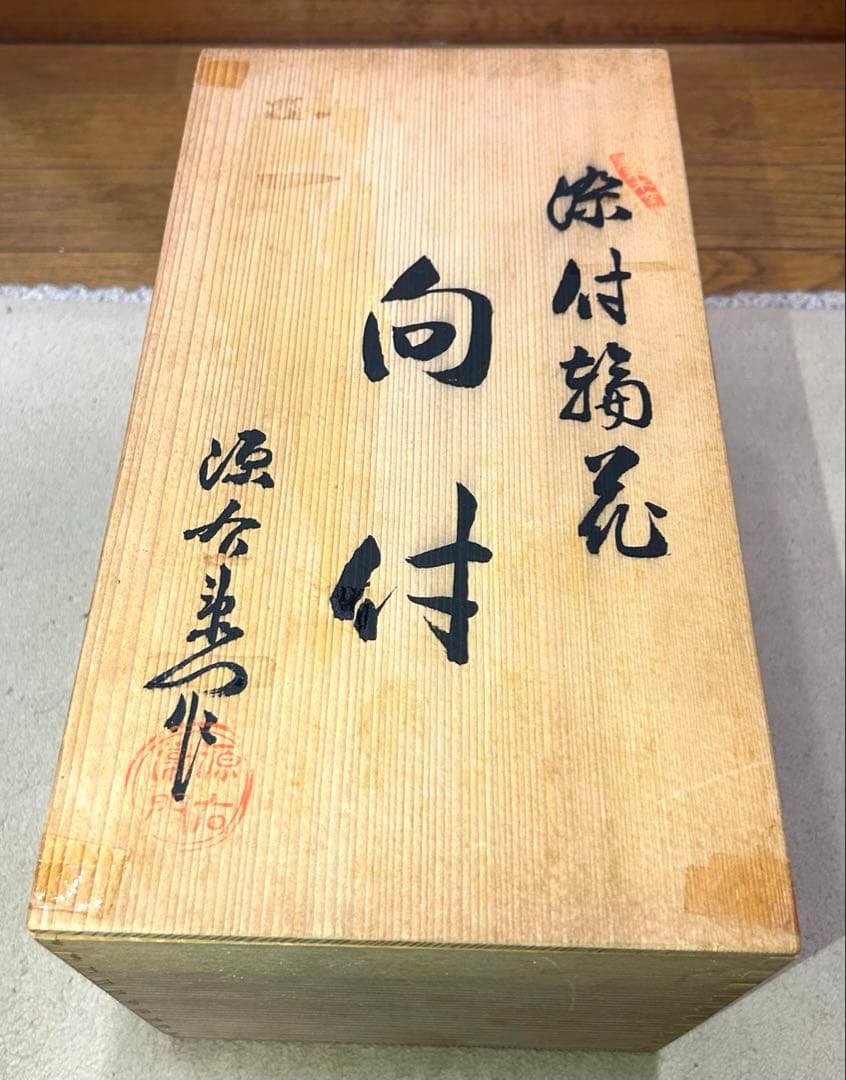 染付輪花
向付
源右衛門作
源右衛門